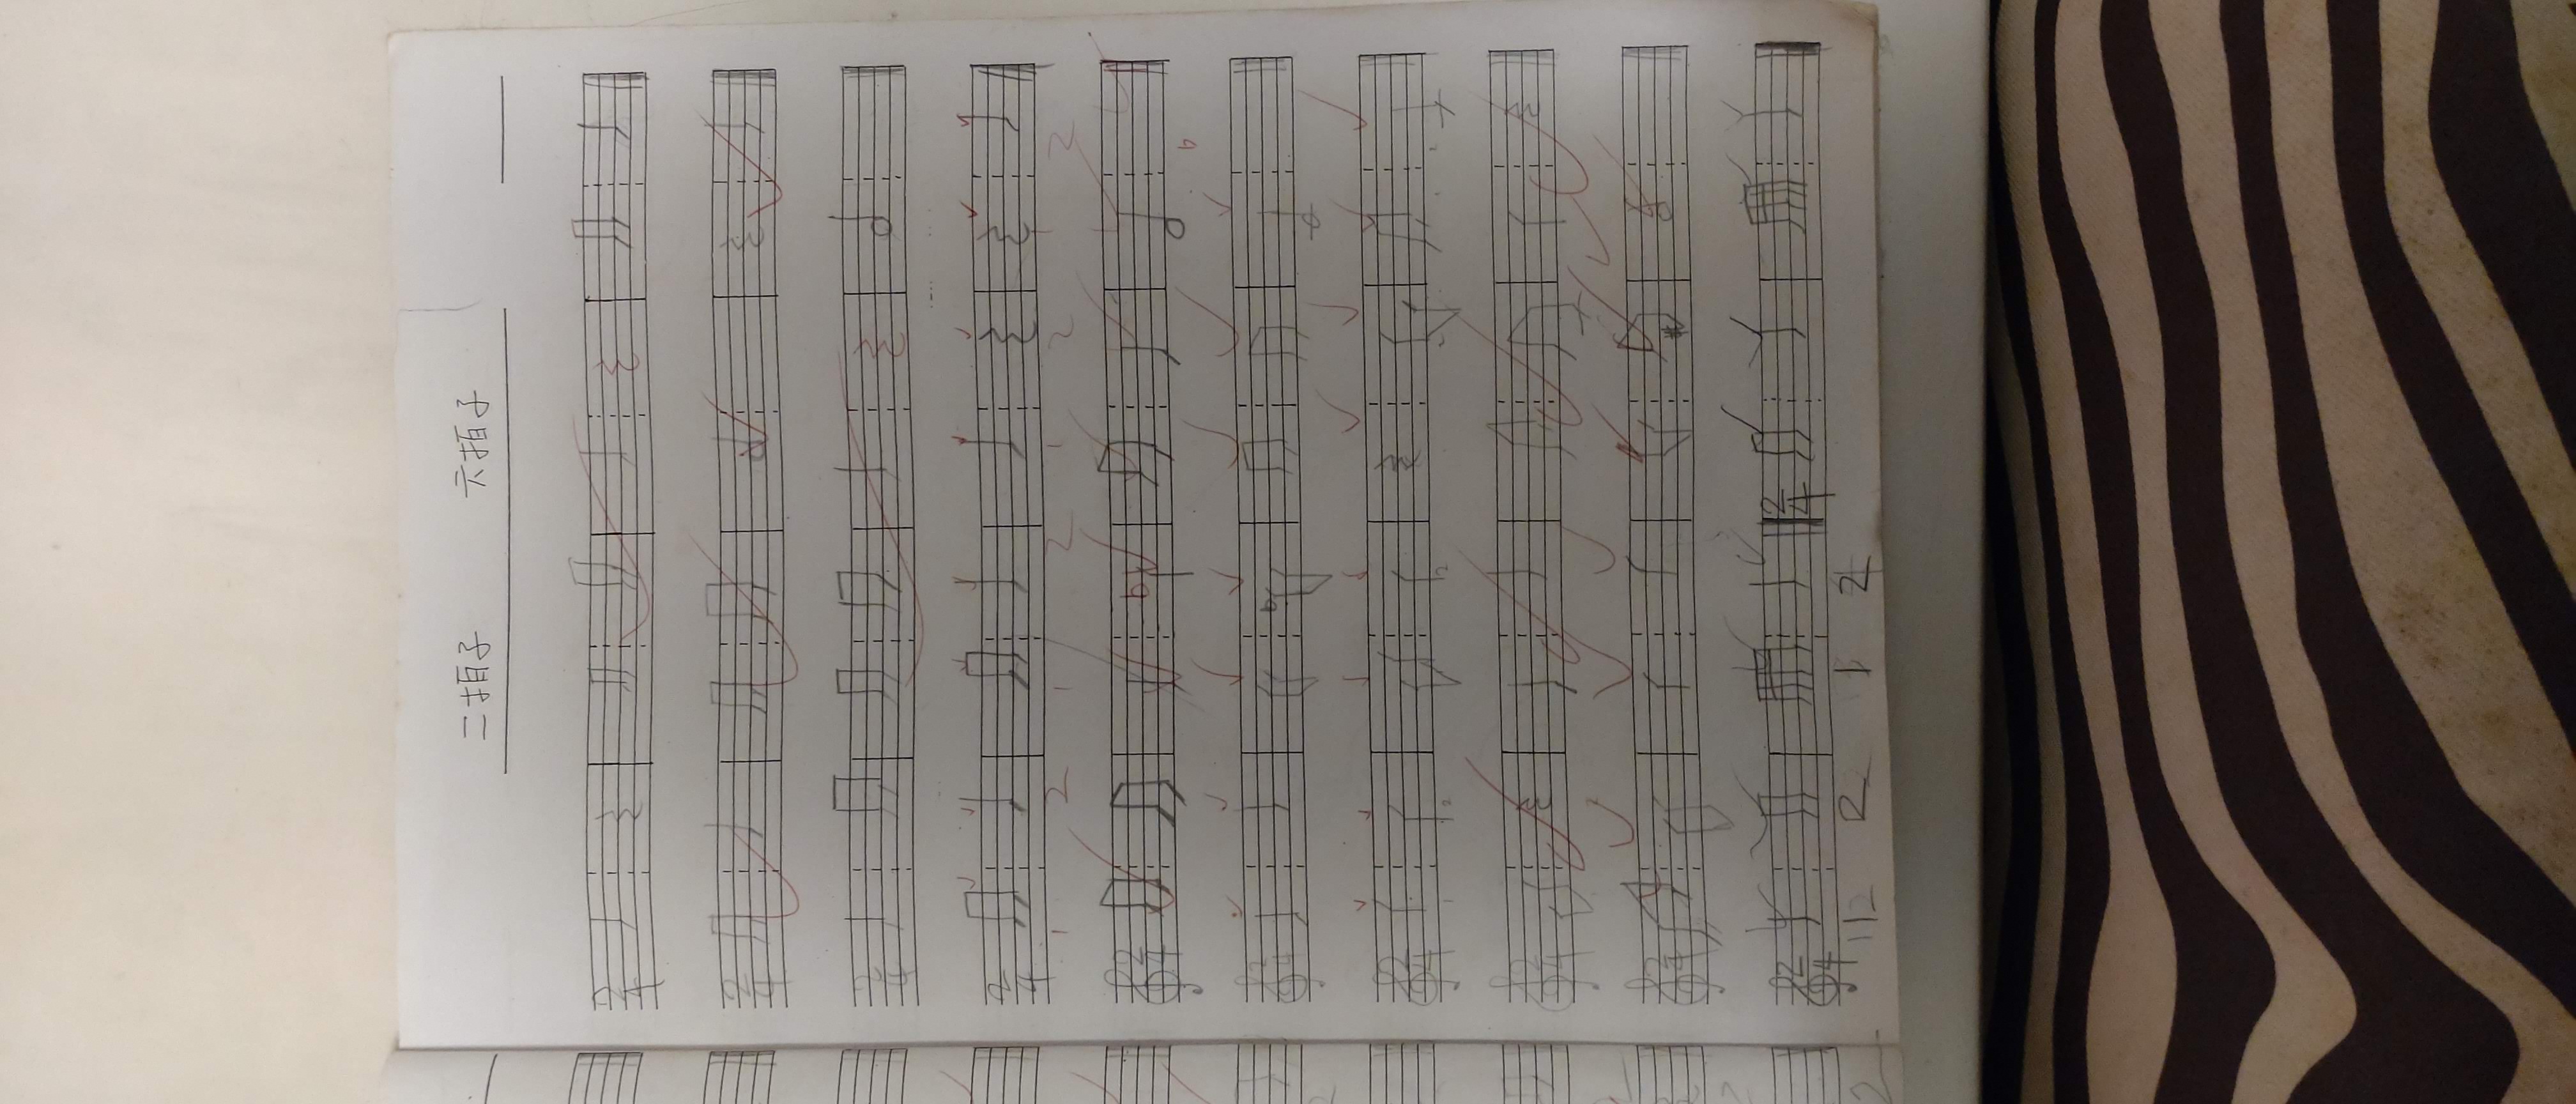 二拍子 六拍子
2 4
2 4
2 4
2 4
1 2 1 2 1 2 1 2
2 4
2 4
2 4
2 4
2 4
2 4 2 4
1 2 1 2